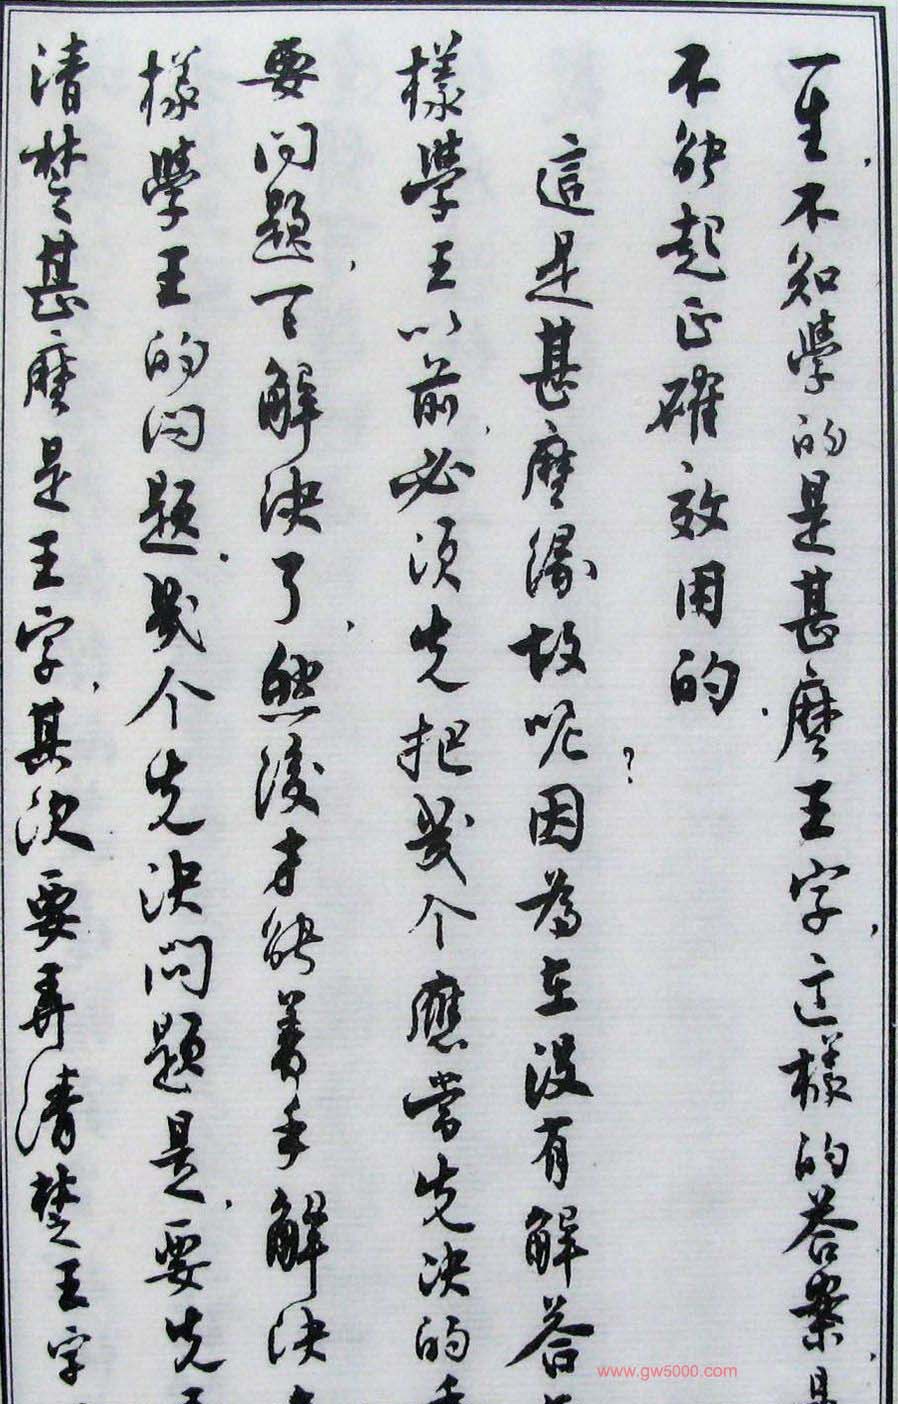 一生，不知學的是甚麼王字，這樣的答案，是
不能起正確效用的．
這是甚麼緣故呢？因為在没有解答
樣學王以前，必須先把幾个應當先决的
要問題，一々解决了，然後才能着手解决
樣學王的问题．幾个先决問題是，要先
清楚甚麼是王字，其次要弄清楚王字
www.gw5000.com